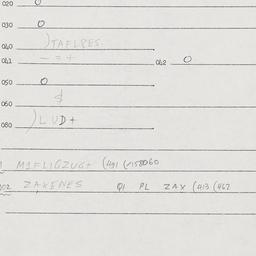 020 O
030 O
040 )TAFLPES.
041 - = + 042 O
050 O
060 &
080 )L UD+
M1FLIGZUG+ (491 (-158060
002 ZAXENES Q1 PL ZAX (413 (467